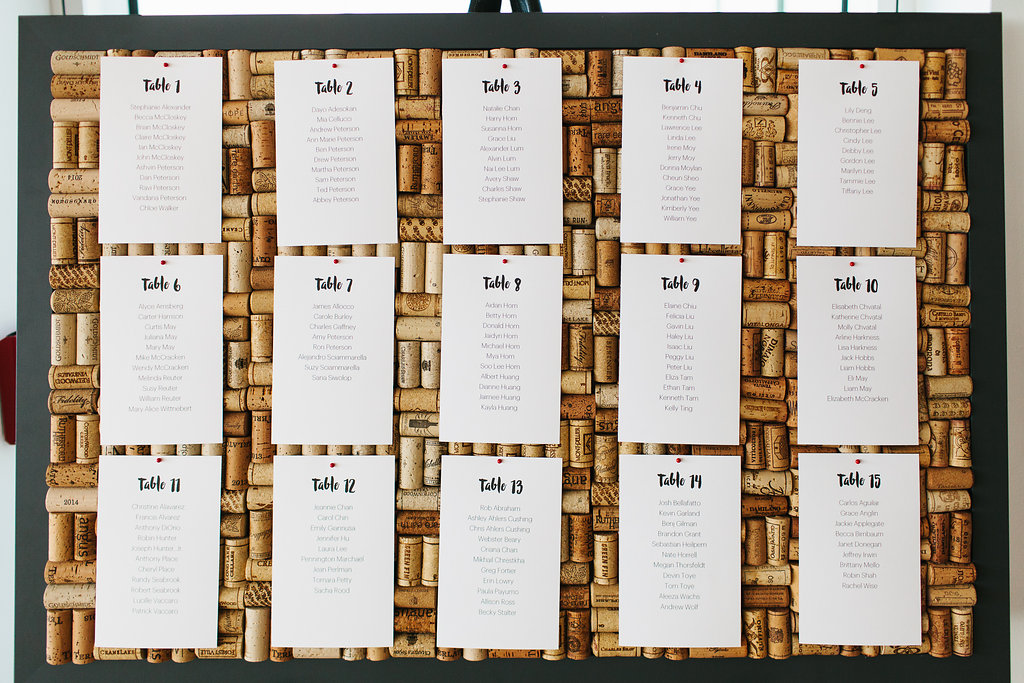 Table 1
Stephanie Alexander
Becca McCloskey
Brian McCloskey
Claire McCloskey
Ian McCloskey
John McCloskey
Ashvin Peterson
Dan Peterson
Ravi Peterson
Vandana Peterson
Chloe Walker
Table 2
Dayo Adesokan
Mia Cellucci
Andrew Peterson
Ann Marie Peterson
Ben Peterson
Drew Peterson
Martha Peterson
Sam Peterson
Ted Peterson
Abbey Peterson
Table 3
Natalie Chan
Harry Horn
Susanna Horn
Grace Liu
Alexander Lum
Alvin Lum
Nai Lee Lum
Avery Shaw
Charles Shaw
Stephanie Shaw
Table 4
Benjamin Chu
Kenneth Chu
Lawrence Lee
Linda Lee
Irene Moy
Jerry Moy
Donna Moylan
Cheun Sheo
Grace Yee
Jonathan Yee
Kimberly Yee
William Yee
Table 5
Lily Deng
Bennie Lee
Christopher Lee
Cindy Lee
Debby Lee
Gordon Lee
Marilyn Lee
Tammie Lee
Tiffany Lee
Table 6
Alyce Arnsberg
Carter Harrison
Curtis May
Juliana May
Mary May
Mike McCracken
Wendy McCracken
Melinda Reuter
Susy Reuter
William Reuter
Mary Alice Wittnebert
Table 7
James Allocco
Carole Burley
Charles Gaffney
Amy Peterson
Ron Peterson
Alejandro Sciammarella
Suzy Sciammarella
Sana Siwolop
Table 8
Aidan Horn
Betty Horn
Donald Horn
Jaidyn Horn
Michael Horn
Mya Horn
Soo Lee Horn
Albert Huang
Dianne Huang
Jaimee Huang
Kayla Huang
Table 9
Elaine Chiu
Felicia Liu
Gavin Liu
Haley Liu
Isaac Liu
Peggy Liu
Peter Liu
Eliza Tam
Ethan Tam
Kenneth Tam
Kelly Ting
Table 10
Elisabeth Chvatal
Katherine Chvatal
Molly Chvatal
Arline Harkness
Lisa Harkness
Jack Hobbs
Liam Hobbs
Eli May
Liam May
Elizabeth McCracken
Table 11
Christine Alavarez
Francis Alvarez
Anthony DiOrio
Robin Hunter
Joseph Hunter, Jr
Anthony Place
Cheryl Place
Rundy Seabrook
Robert Seabrook
Lucille Vaccaro
Patrick Vaccaro
Table 12
Jeannie Chan
Carol Chin
Emily Giannusa
Jennifer Hu
Laura Lee
Pennington Marchael
Jean Perlman
Tamara Petty
Sacha Rood
Table 13
Rob Abraham
Ashley Ahlers Cushing
Chris Ahlers Cushing
Webster Beary
Oriana Chan
Mikhail Chrestkha
Greg Fortier
Erin Lowry
Paula Payumo
Allison Ross
Becky Stalter
Table 14
Josh Bellafatto
Kevin Garland
Benj Gilman
Brandon Grant
Sebastian Heilpern
Nate Horrell
Megan Thorsfeldt
Devin Toye
Tom Toye
Aleeza Wachs
Andrew Wolf
Table 15
Carlos Aguilar
Grace Anglin
Jackie Applegate
Becca Birnbaum
Janet Donegan
Jeffrey Irwin
Brittany Mello
Robin Shah
Rachel Wise